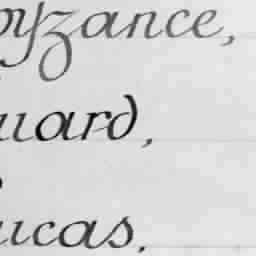 oyzance,
uard,
ucas.